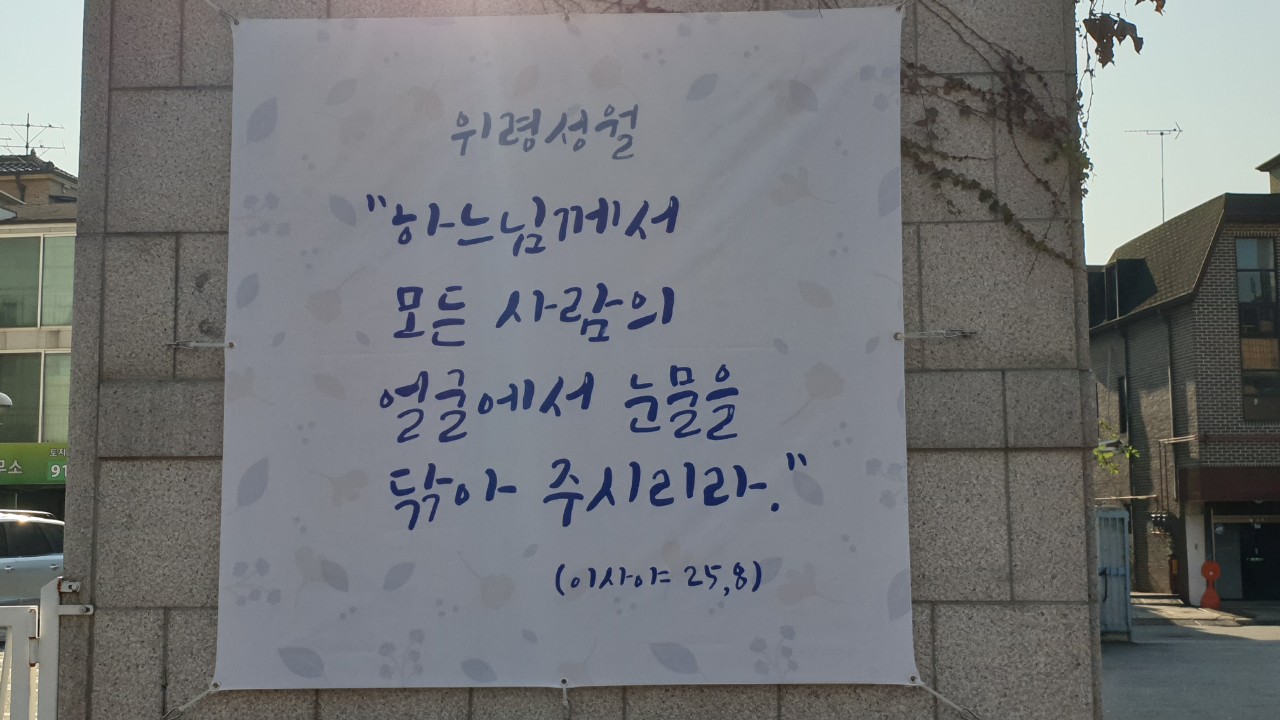 위령성월
"하느님께서
모든 사람의
얼굴에서 눈물을
닦아 주시리라."
(이사야 25,8)
91